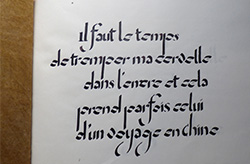 il faut le temps
de tremper ma cervelle
dans l'encre et cela
prend parfois celui
d'un voyage en chine